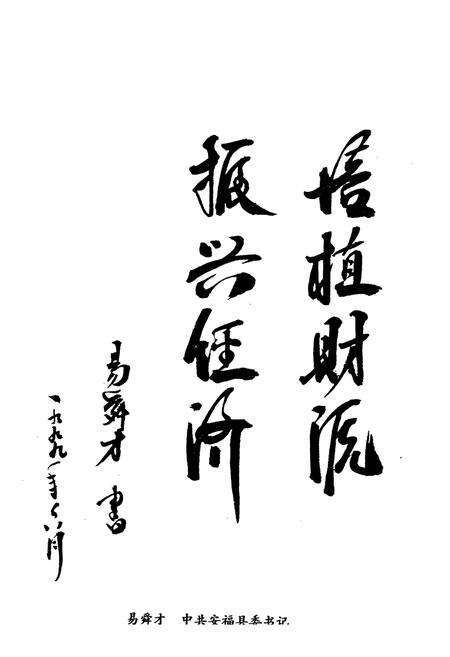 培植財源
振兴经济
易舜才 書
一九九一年八月
易舜才 中共安福县委书记